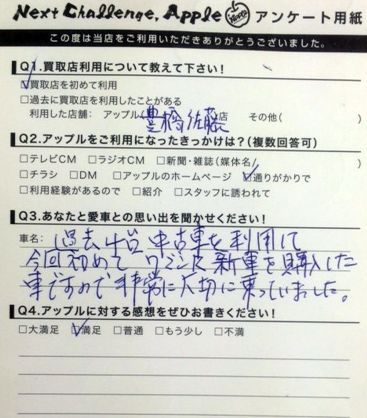 Next Challenge, Apple アンケート用紙
この度は当店をご利用いただきありがとうございました。
Q1.買取店利用について教えて下さい!
☑買取店を初めて利用
□過去に買取店を利用したことがある
利用した店舗: アップル(豊橋佐藤 店 その他( )
Q2.アップルをご利用になったきっかけは?(複数回答可)
□テレビCM □ラジオCM □新聞・雑誌(媒体名 )
□チラシ □DM □アップルのホームページ ☑通りがかりで
□利用経験があるので □紹介 □スタッフに誘われて
Q3.あなたと愛車との思い出を聞かせください!
車名: 過去4台 中古車を利用して
今回初めて ワゴンR 新車を購入した
車ですので 非常に大切に乗っていました。
Q4.アップルに対する感想をぜひお書きください!
□大満足 ☑満足 □普通 □もう少し □不満